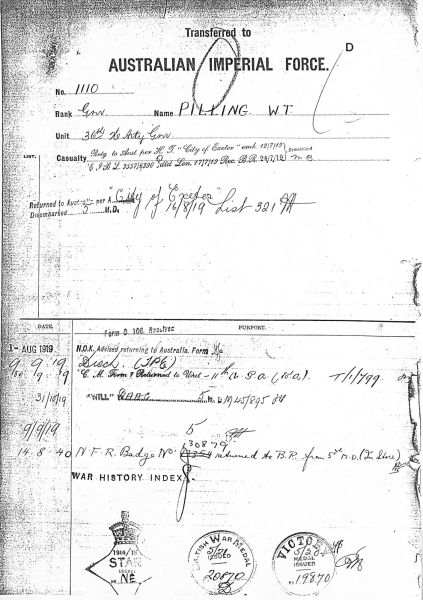 Transferred to
D
AUSTRALIAN IMPERIAL FORCE.
No. 1110
Rank Gnr Name PILLING. W.T.
Unit 36th H. Arty Grp
LIST. Casualty Retg to Aust per H.T. "City of Exeter" emb. 12/7/19 Demobilised
C.I.B.L. 3557/6330 Lon. 17/7/19 Rec. B.R.
Returned to Australia per "City of Exeter"
Disembarked 3 M.D. 16/8/19 List 321
DATE. PURPORT.
Form B. 106. Received
1- AUG 1919 N.O.K. Advised returning to Australia. Form
9. 9. 19 Disch. (TPE)
9. 19 C. M. Form Returned to Unit - 11th a. G. a. (W.a.). T/1/799.
31/10/19 "WILL" 5 M.D. M45/895
9/9/19 5
30879
14. 8. 40 N.F.R. Badge No. returned to B.R. from 5th M.D. (In Store)
WAR HISTORY INDEX
1914/15
STAR
ISSUED
BRITISH WAR MEDAL
ISSUED
20870
VICTORY
MEDAL
ISSUED
No 19870